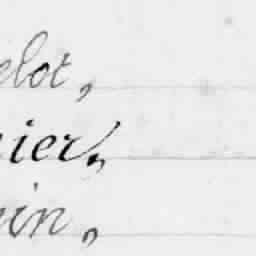 elot,
nier,
in,